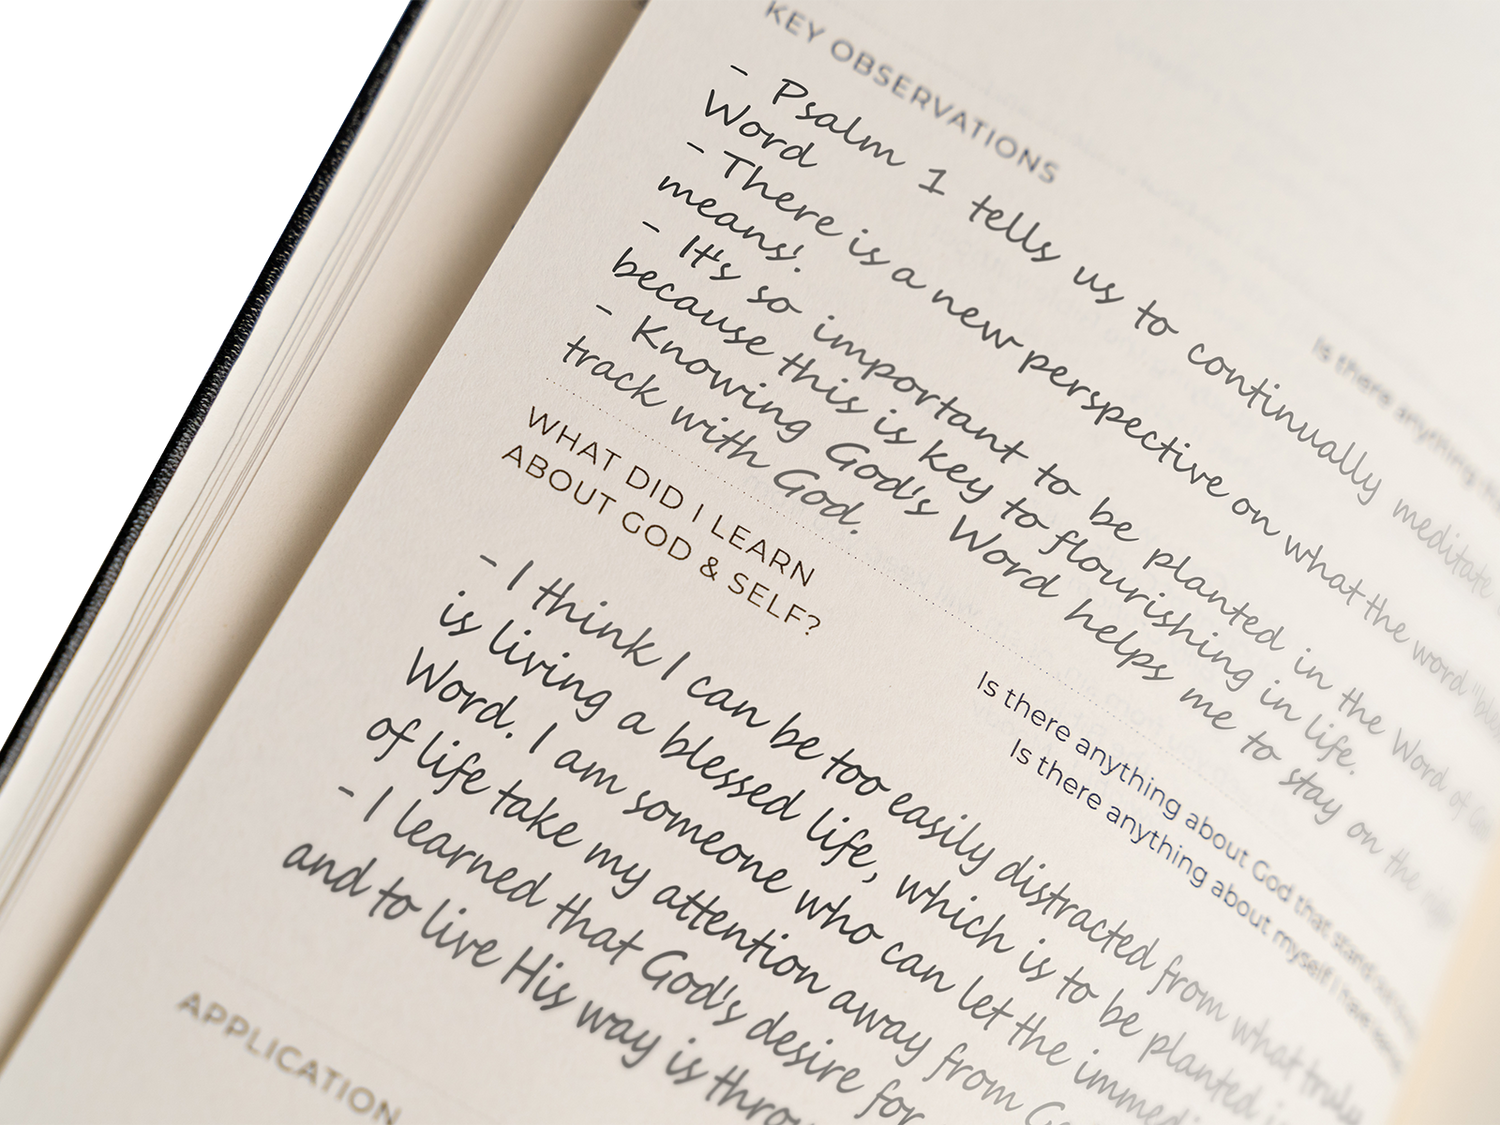 KEY OBSERVATIONS
Is there anything
- Psalm 1 tells us to continually meditate
Word
- There is a new perspective on what the word
means'.
- It's so important to be planted in the Word of
because this is key to flourishing in life.
- Knowing God's Word helps me to stay on the
track with God.
WHAT DID I LEARN
ABOUT GOD & SELF?
Is there anything about God that stands
Is there anything about myself I have
- I think I can be too easily distracted from what truly
is living a blessed life, which is to be planted
Word. I am someone who can let the
of life take my attention away from
- I learned that God's desire for
and to live His way is
APPLICATION